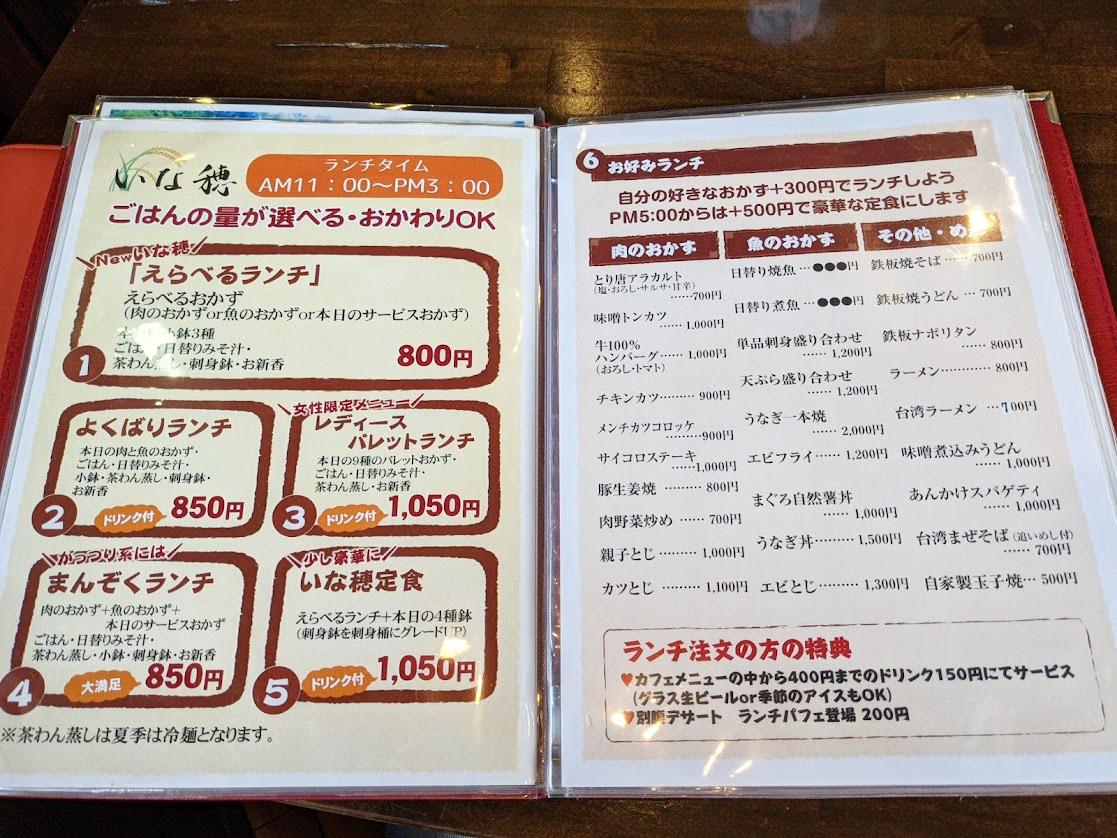 いな穂
ランチタイム
AM11：00～PM3：00
ごはんの量が選べる・おかわりOK
Newいな穂!
「えらべるランチ」
えらべるおかず
(肉のおかずor魚のおかずor本日のサービスおかず)
小鉢3種
ごはん・日替りみそ汁・
茶わん蒸し・刺身鉢・お新香
1
800円
よくばりランチ
本日の肉と魚のおかず・
ごはん・日替りみそ汁・
小鉢・茶わん蒸し・刺身鉢・
お新香
2
ドリンク付
850円
女性限定メニュー
レディース
パレットランチ
本日の9種のパレットおかず・
ごはん・日替りみそ汁・
茶わん蒸し・お新香
3
ドリンク付
1,050円
がっつり系には
まんぞくランチ
肉のおかず+魚のおかず+
本日のサービスおかず
ごはん・日替りみそ汁・
茶わん蒸し・小鉢・刺身鉢・お新香
4
大満足
850円
少し豪華に
いな穂定食
えらべるランチ+本日の4種鉢
(刺身鉢を刺身桶にグレードUP)
5
ドリンク付
1,050円
※茶わん蒸しは夏季は冷麺となります。
6 お好みランチ
自分の好きなおかず+300円でランチしよう
PM5:00からは+500円で豪華な定食にします
肉のおかず
とり唐アラカルト
(塩・おろし・サルサ・甘辛)
……700円
味噌トンカツ
……1,000円
牛100%
ハンバーグ……1,000円
(おろし・トマト)
チキンカツ………900円
メンチカツコロッケ
………900円
サイコロステーキ
……1,000円
豚生姜焼 ………800円
肉野菜炒め ……700円
親子とじ ………1,000円
カツとじ ………1,100円
魚のおかず
日替り焼魚 …●●●円
日替り煮魚 …●●●円
単品刺身盛り合わせ
……1,200円
天ぷら盛り合わせ
……1,200円
うなぎ一本焼
……2,000円
エビフライ ……1,200円
まぐろ自然薯丼
……1,000円
うなぎ丼………1,500円
エビとじ ………1,300円
その他・め
鉄板焼そば ……700円
鉄板焼うどん …700円
鉄板ナポリタン
……800円
ラーメン…………800円
台湾ラーメン …700円
味噌煮込みうどん
……1,000円
あんかけスパゲティ
……1,000円
台湾まぜそば(追いめし付)
……700円
自家製玉子焼…500円
ランチ注文の方の特典
♥カフェメニューの中から400円までのドリンク150円にてサービス
(グラス生ビールor季節のアイスもOK)
♥別腹デザート ランチパフェ登場 200円